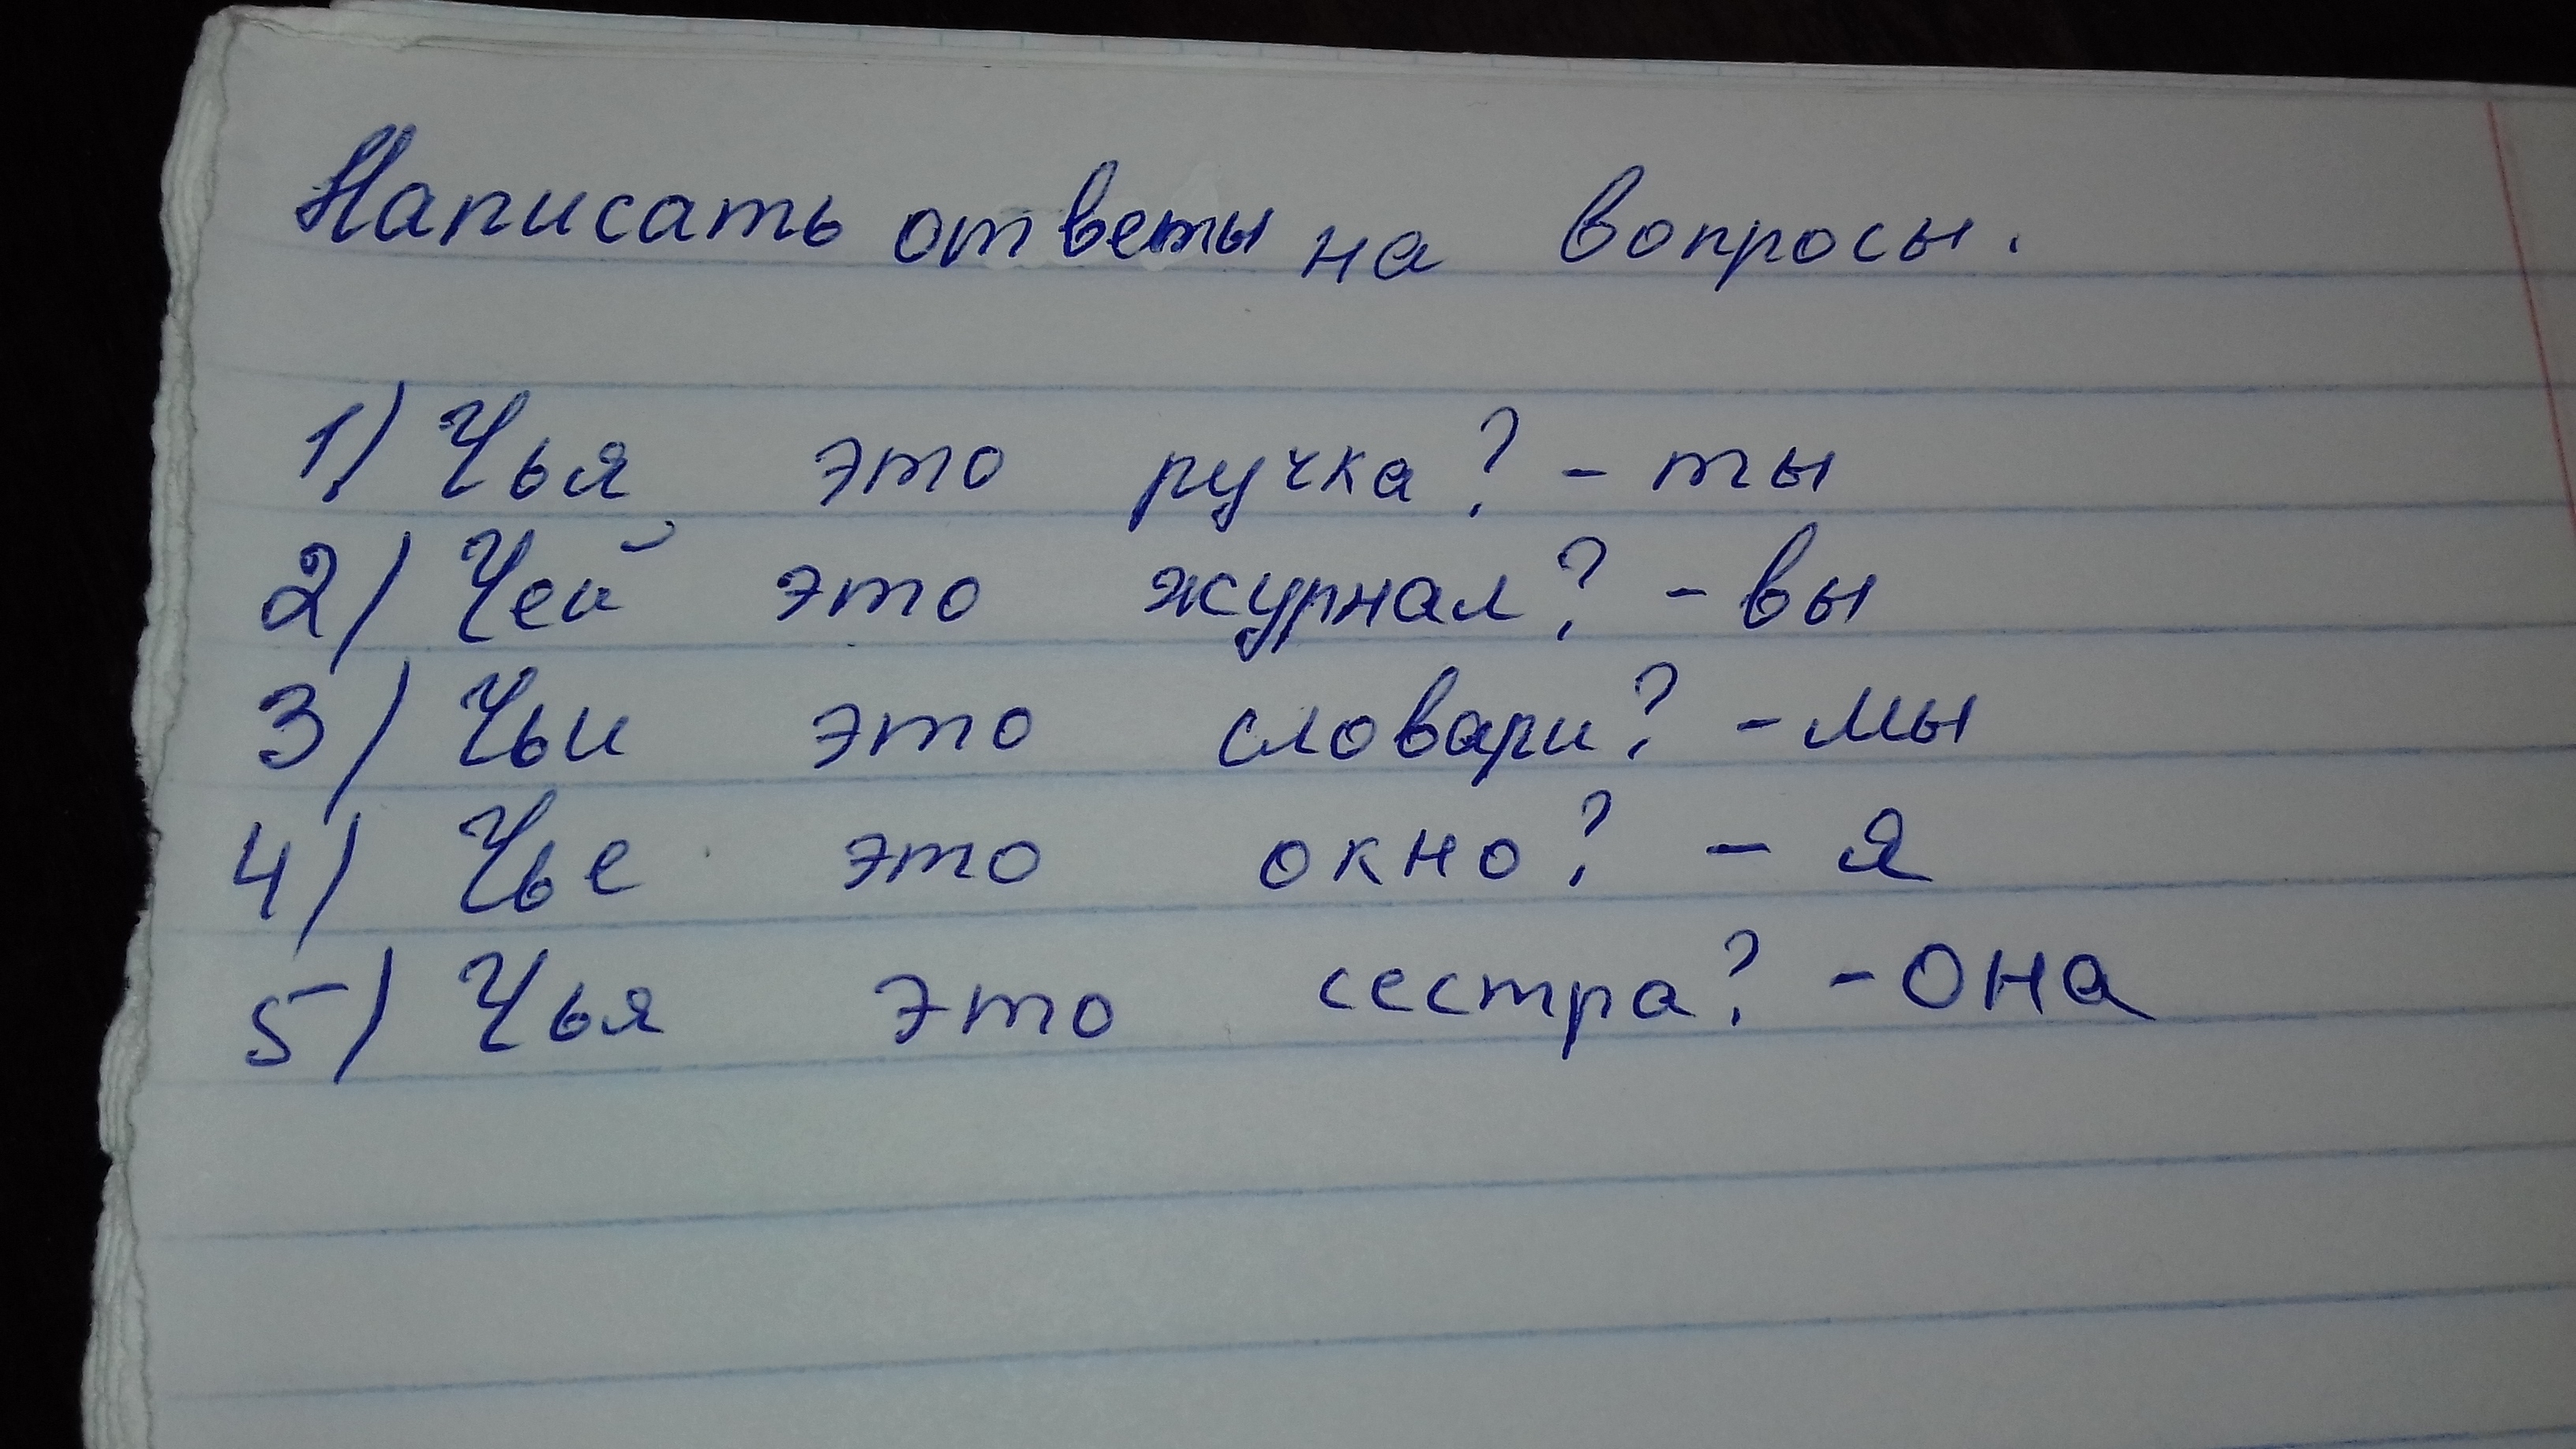 Написать ответы на вопросы.
1) Чья это ручка? - ты
2) Чей это журнал? - вы
3) Чьи это словари? - мы
4) Чье это окно? - я
5) Чья это сестра? - она